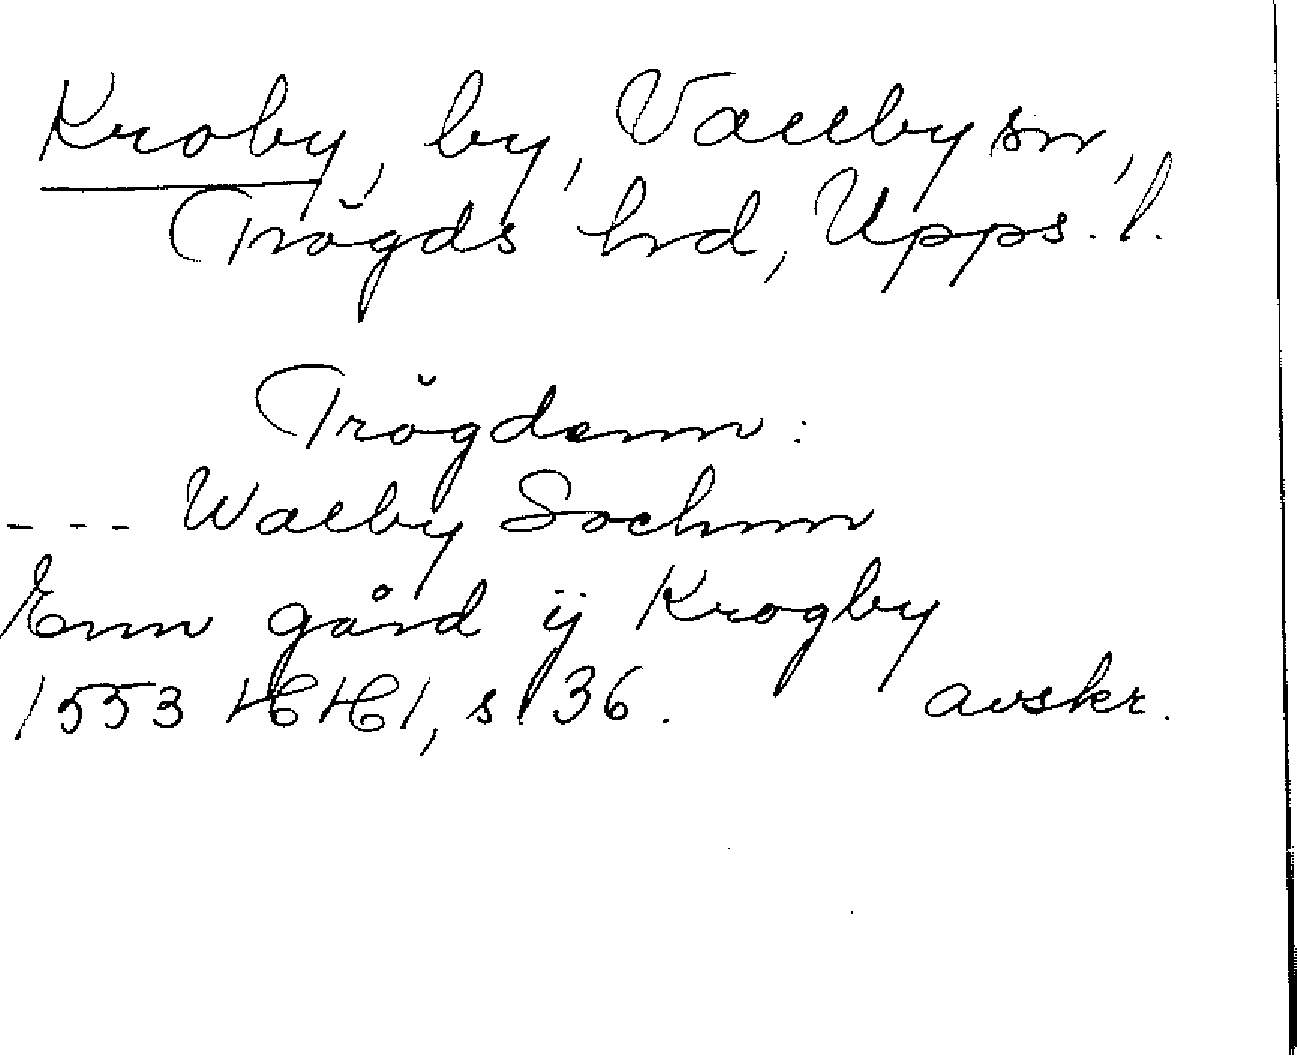 Kroby, by, Vallby sn,
Trögds hd, Upps. l.
Trögdenn:
--- Walby Sochnn
Enn gård ij Krogby
1553 HH 1, s 136. avskr.